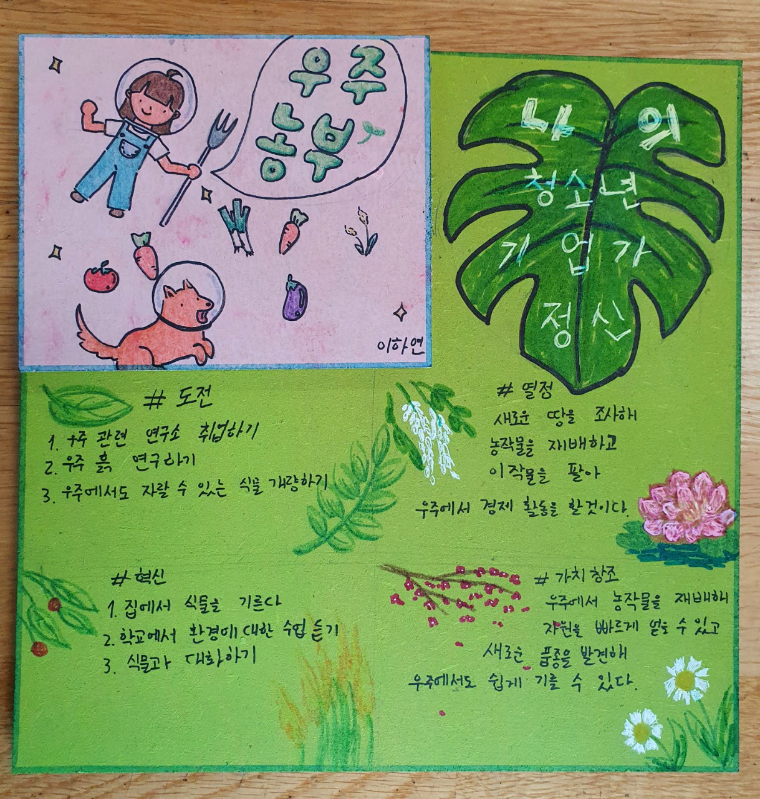 우주
농부
이하연
나의
청소년
기업가
정신
# 도전
1. 우주 관련 연구소 취업하기
2. 우주 흙 연구하기
3. 우주에서도 자랄 수 있는 식물 개량하기
# 열정
새로운 땅을 조사해
농작물을 재배하고
이 작물을 팔아
우주에서 경제 활동을 할것이다.
# 혁신
1. 집에서 식물을 기른다
2. 학교에서 환경에 대한 수업 듣기
3. 식물과 대화하기
# 가치 창조
우주에서 농작물을 재배해
자원을 빠르게 얻을 수 있고
새로운 품종을 발견해
우주에서도 쉽게 기를 수 있다.